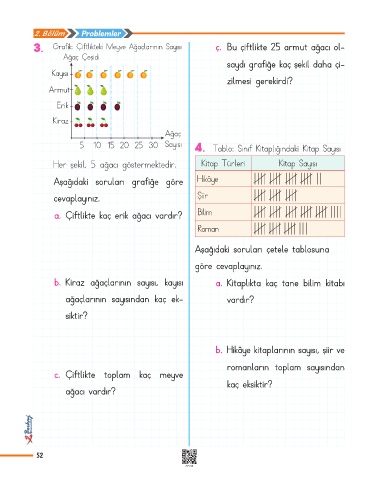 2. Bölüm Problemler
3. Grafik: Çiftlikteki Meyve Ağaçlarının Sayısı
Ağaç Çeşidi
Kayısı
Armut
Erik
Kiraz
5 10 15 20 25 30
Ağaç
Sayısı
Her şekil, 5 ağacı göstermektedir.
Aşağıdaki soruları grafiğe göre
cevaplayınız.
a. Çiftlikte kaç erik ağacı vardır?
b. Kiraz ağaçlarının sayısı, kayısı
ağaçlarının sayısından kaç ek-
siktir?
c. Çiftlikte toplam kaç meyve
ağacı vardır?
ç. Bu çiftlikte 25 armut ağacı ol-
saydı grafiğe kaç şekil daha çi-
zilmesi gerekirdi?
4. Tablo: Sınıf Kitaplığındaki Kitap Sayısı
Kitap Türleri Kitap Sayısı
Hikâye
Şiir
Bilim
Roman
Aşağıdaki soruları çetele tablosuna
göre cevaplayınız.
a. Kitaplıkta kaç tane bilim kitabı
vardır?
b. Hikâye kitaplarının sayısı, şiir ve
romanların toplam sayısından
kaç eksiktir?
52